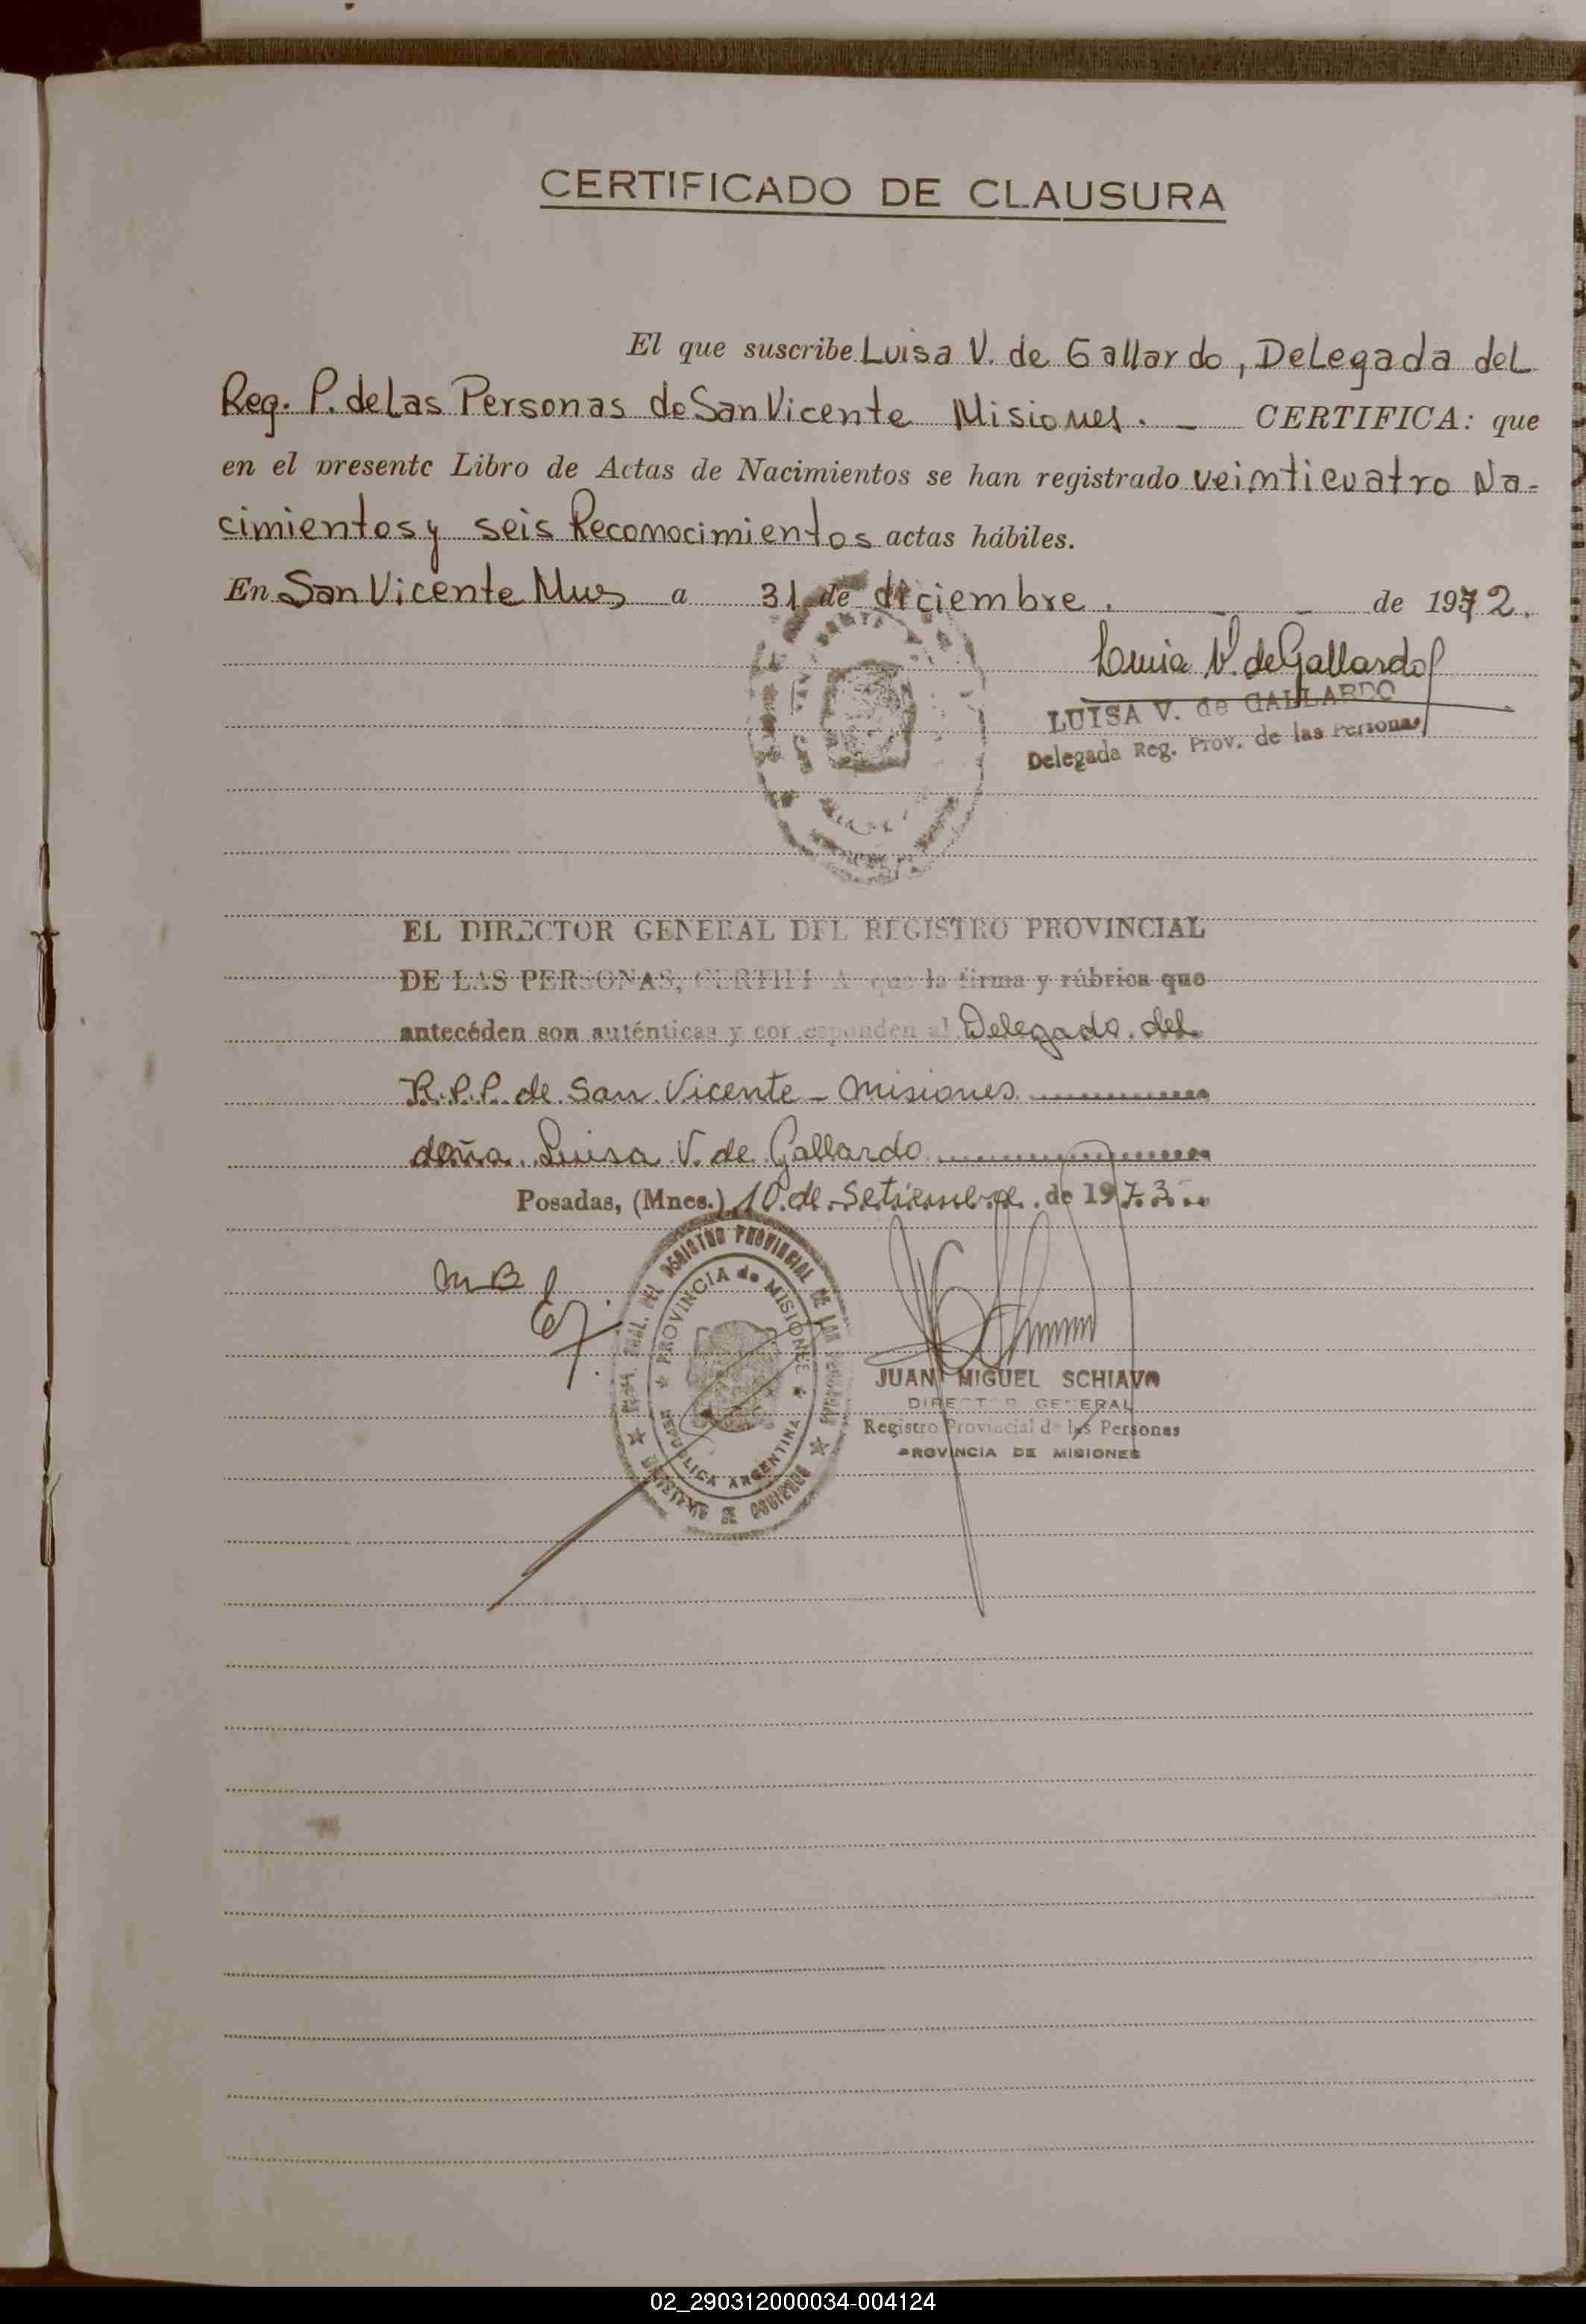 CERTIFICADO DE CLAUSURA
El que suscribe Luisa V. de Gallardo, Delegada del
Reg. P. de Las Personas de San Vicente Misiones. - CERTIFICA: que
en el presente Libro de Actas de Nacimientos se han registrado veinticuatro Na-
cimientos y seis Reconocimientos actas hábiles.
En San Vicente Mns a 31 de diciembre. - - de 1972.
Luisa V. de Gallardo
LUISA V. de GALLARDO
Delegada Reg. Prov. de las Personas
EL DIRECTOR GENERAL DEL REGISTRO PROVINCIAL
DE LAS PERSONAS, CERTIFICA que la firma y rúbrica que
antecéden son auténticas y corresponden al Delegado del
R.P.P. de San Vicente - Misiones
doña Luisa V. de Gallardo
Posadas, (Mnes.) 10 de Setiembre de 1973
MB
DEL REGISTRO PROVINCIAL DE LAS PERSONAS
PROVINCIA de MISIONES
REPUBLICA ARGENTINA
MINISTERIO DE GOBIERNO
JUAN MIGUEL SCHIAVO
DIRECTOR GENERAL
Registro Provincial de las Personas
PROVINCIA DE MISIONES
02_290312000034-004124